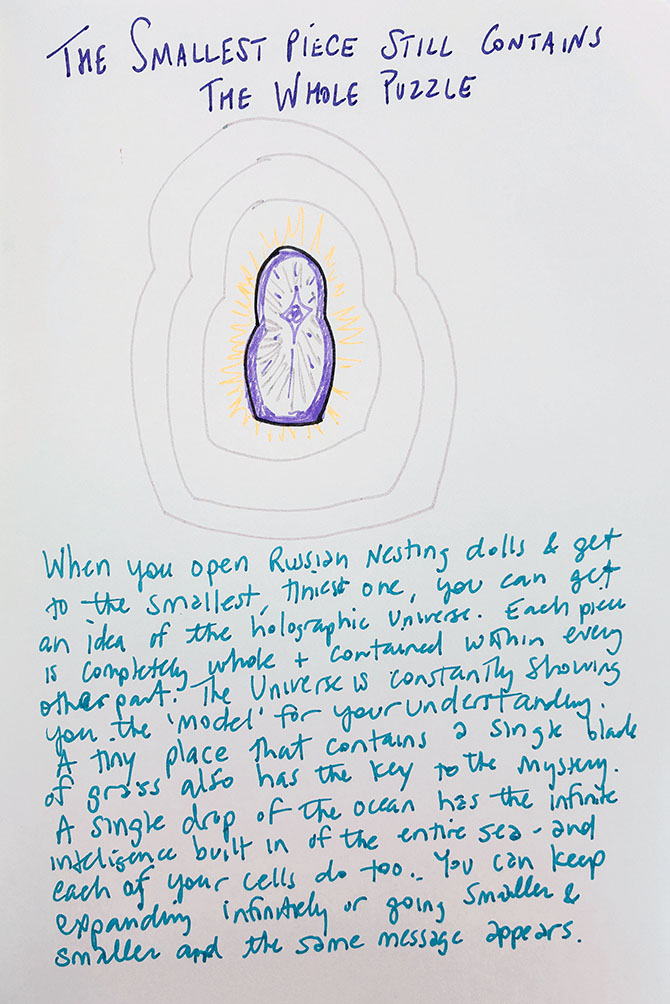 THE SMALLEST PIECE STILL CONTAINS
THE WHOLE PUZZLE
When you open Russian Nesting dolls & get
to the smallest, tiniest one, you can get
an idea of the holographic Universe. Each piece
is completely whole + contained within every
other part. The Universe is constantly showing
you the 'model' for your understanding.
A tiny place that contains a single blade
of grass also has the key to the mystery.
A single drop of the ocean has the infinite
inteligence built in of the entire sea - and
each of your cells do too.. You can keep
expanding infinitely or going smaller &
smaller and the same message appears.